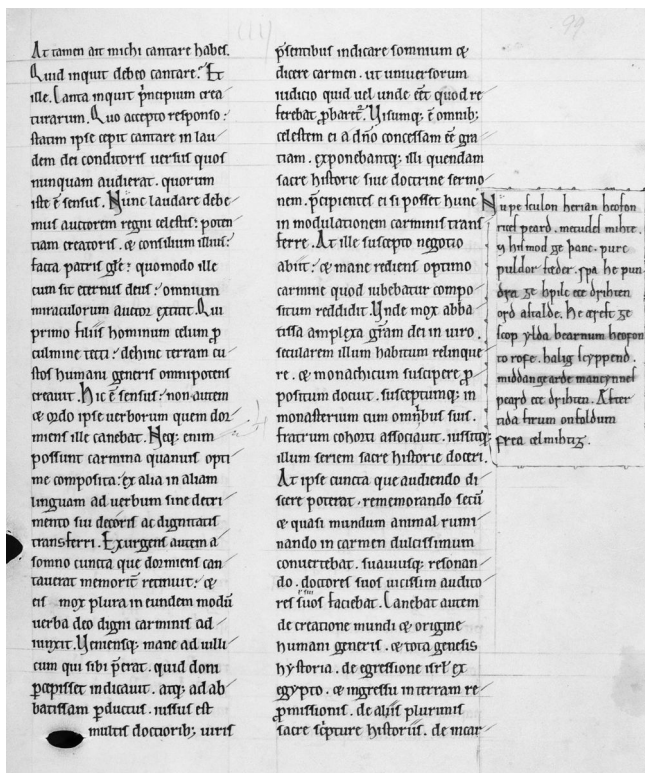 At tamen ait michi cantare habes.
Quid inquit debeo cantare? Et
ille. Canta inquit p̃ncipium crea
turarum. Quo accepto responso:
statim ipse cepit cantare in lau
dem dei conditoris uersus quos
nunquam audierat. quorum
iste ẽ sensus. Nunc laudare debe
mus auctorem regni celestis: poten
tiam creatoris. & consilium illius:
facta patris gl̃e: quomodo ille
cum sit eternus deus: omnium
miraculorum auctor extitit. Qui
primo filiis hominum celum ꝓ
culmine tecti: dehinc terram cu
stos humani generis omnipotens
creauit. Hic ẽ sensus: non autem
& ordo ipse uerborum quem dor
miens ille canebat. Neq; enim
possunt carmina quanuis opti
me composita: ex alia in aliam
linguam ad uerbum sine detri
mento sui decoris ac dignitatis
transferri. Exurgens autem a
somno cuncta que dormiens can
tauerat memorit̃ retinuit: &
eis mox plura in eundem modũ
uerba deo digni carminis ad
iunxit. Veniensq; mane ad uilli
cum qui sibi p̃erat. quid doni
ꝑcepisset indicauit. atq; ad ab
batissam ꝑductus. iussus est
multis doctiorib; uiris
p̃sentibus indicare somnium &
dicere carmen. ut uniuersorum
iudicio quid uel unde eẽt quod re
ferebat ꝓbaret̃. Visumq; ẽ omnib;
celestem ei a dño concessam eẽ gra
tiam. exponebantq; illi quendam
sacre historie siue doctrine sermo
nem. p̃cipientes ei si posset hunc
in modulationem carminis trans
ferre. At ille suscepto negotio
abiit: & mane rediens optimo
carmine quod iubebatur compo
situm reddidit. Unde mox abba
tissa amplexa gr̃am dei in uiro.
secularem illum habitum relinque
re. & monachicum suscipere ꝓ
positum docuit. susceptumq; in
monasterium cum omnibus suis.
fratrum cohorti associauit. iussitq;
illum seriem sacre historie doceri.
At ipse cuncta que audiendo di
scere poterat. rememorando secũ
& quasi mundum animal rumi
nando in carmen dulcissimum
conuertebat. suauiusq; resonan
do. doctores suos uicissim audito
res suos faciebat. Canebat autem
de creatione mundi & origine
humani generis. & tota genesis
hystoria. de egressione isrl̃ ex
egypto. & ingressu in terram re
ꝓmissionis. de aliis plurimis
sacre sc̃pture historiis. de incar
Nu þe sculon herian heofon
rices ƿeard. metudes mihte.
⁊ his mod ge þanc. ƿurc
ƿuldor fæder. sƿa he ƿun
dra ge hƿilc ece drihten
ord astalde. He ærest ge
scop ylda bearnum heofon
to rofe. halig scyppend.
middangearde mancynnes
ƿeard ece drihten. Æfter
tida firum on foldum
frea ælmihtig.